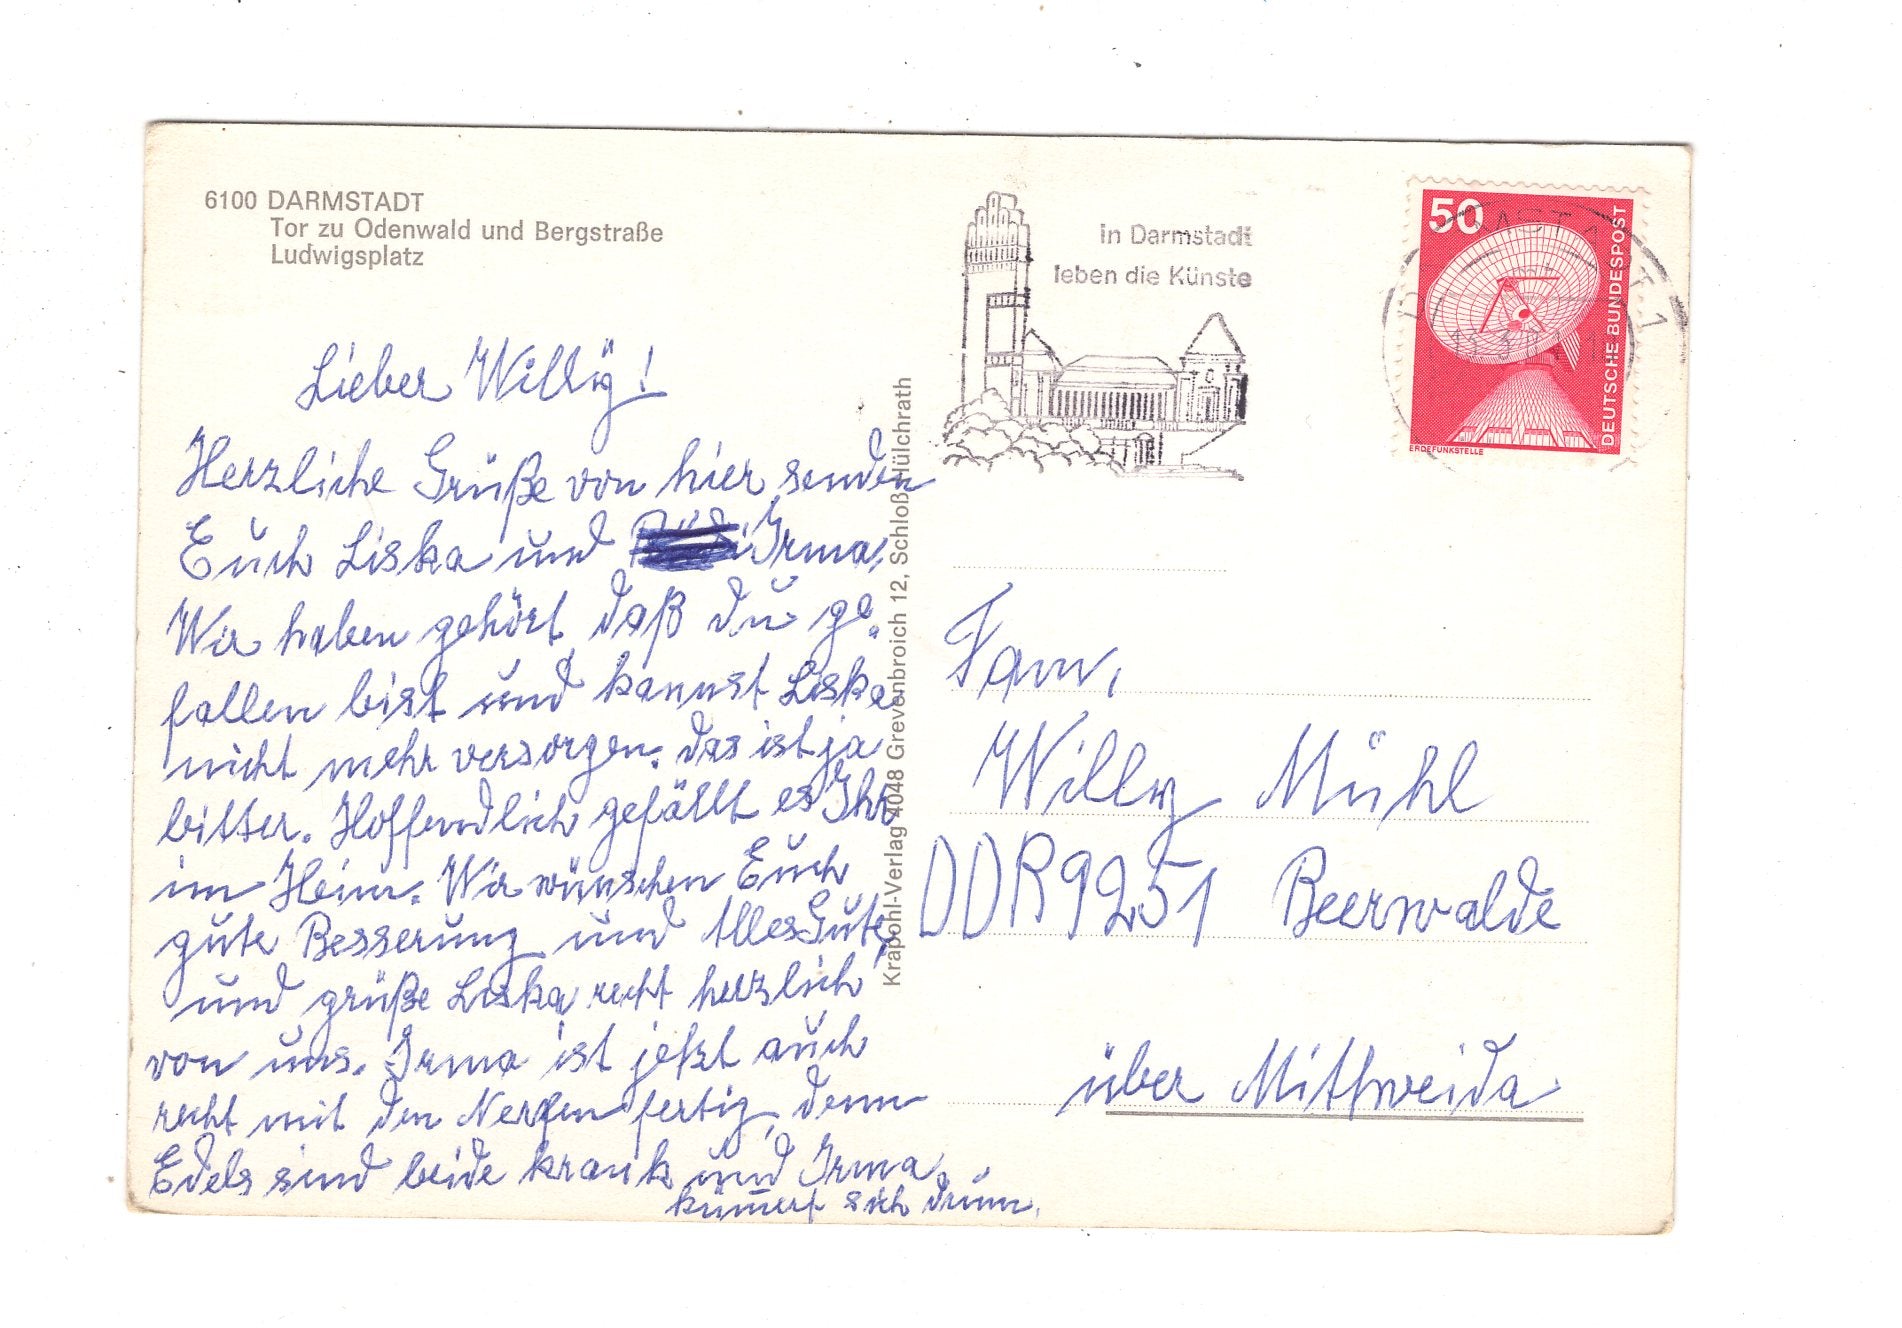 6100 DARMSTADT
Tor zu Odenwald und Bergstraße
Ludwigsplatz
Lieber Willÿ!
Herzliche Grüße von hier senden
Euch Liska und Irma,
Wir haben gehört daß du ge-
fallen bist und kannst Liska
nicht mehr versorgen. das ist ja
bitter. Hoffendlich gefällt es Ihr
im Heim. Wir wünschen Euch
gute Besserung und Alles Gute,
und grüße Liska recht herzlich
von uns. Irma ist jetzt auch
recht mit den Nerfen fertig, denn
Edels sind beide krank und Irma
kümert sich drum.
Krapohl-Verlag 4048 Grevenbroich 12, Schloß Hülchrath
in Darmstadt
leben die Künste
50
DEUTSCHE BUNDESPOST
ERDEFUNKSTELLE
Fam.
Willy Mühl
DDR 9251 Beerwalde
über Mittweida